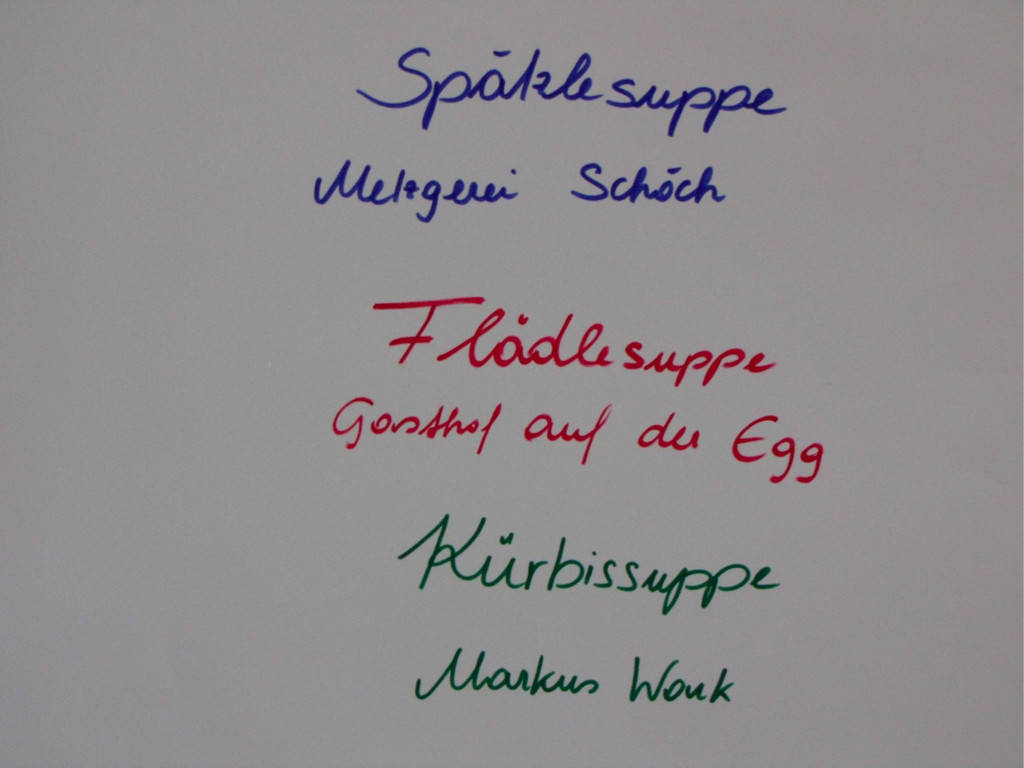 Spätzlesuppe
Metzgerei Schöch
Flädlesuppe
Gasthof auf der Egg
Kürbissuppe
Markus